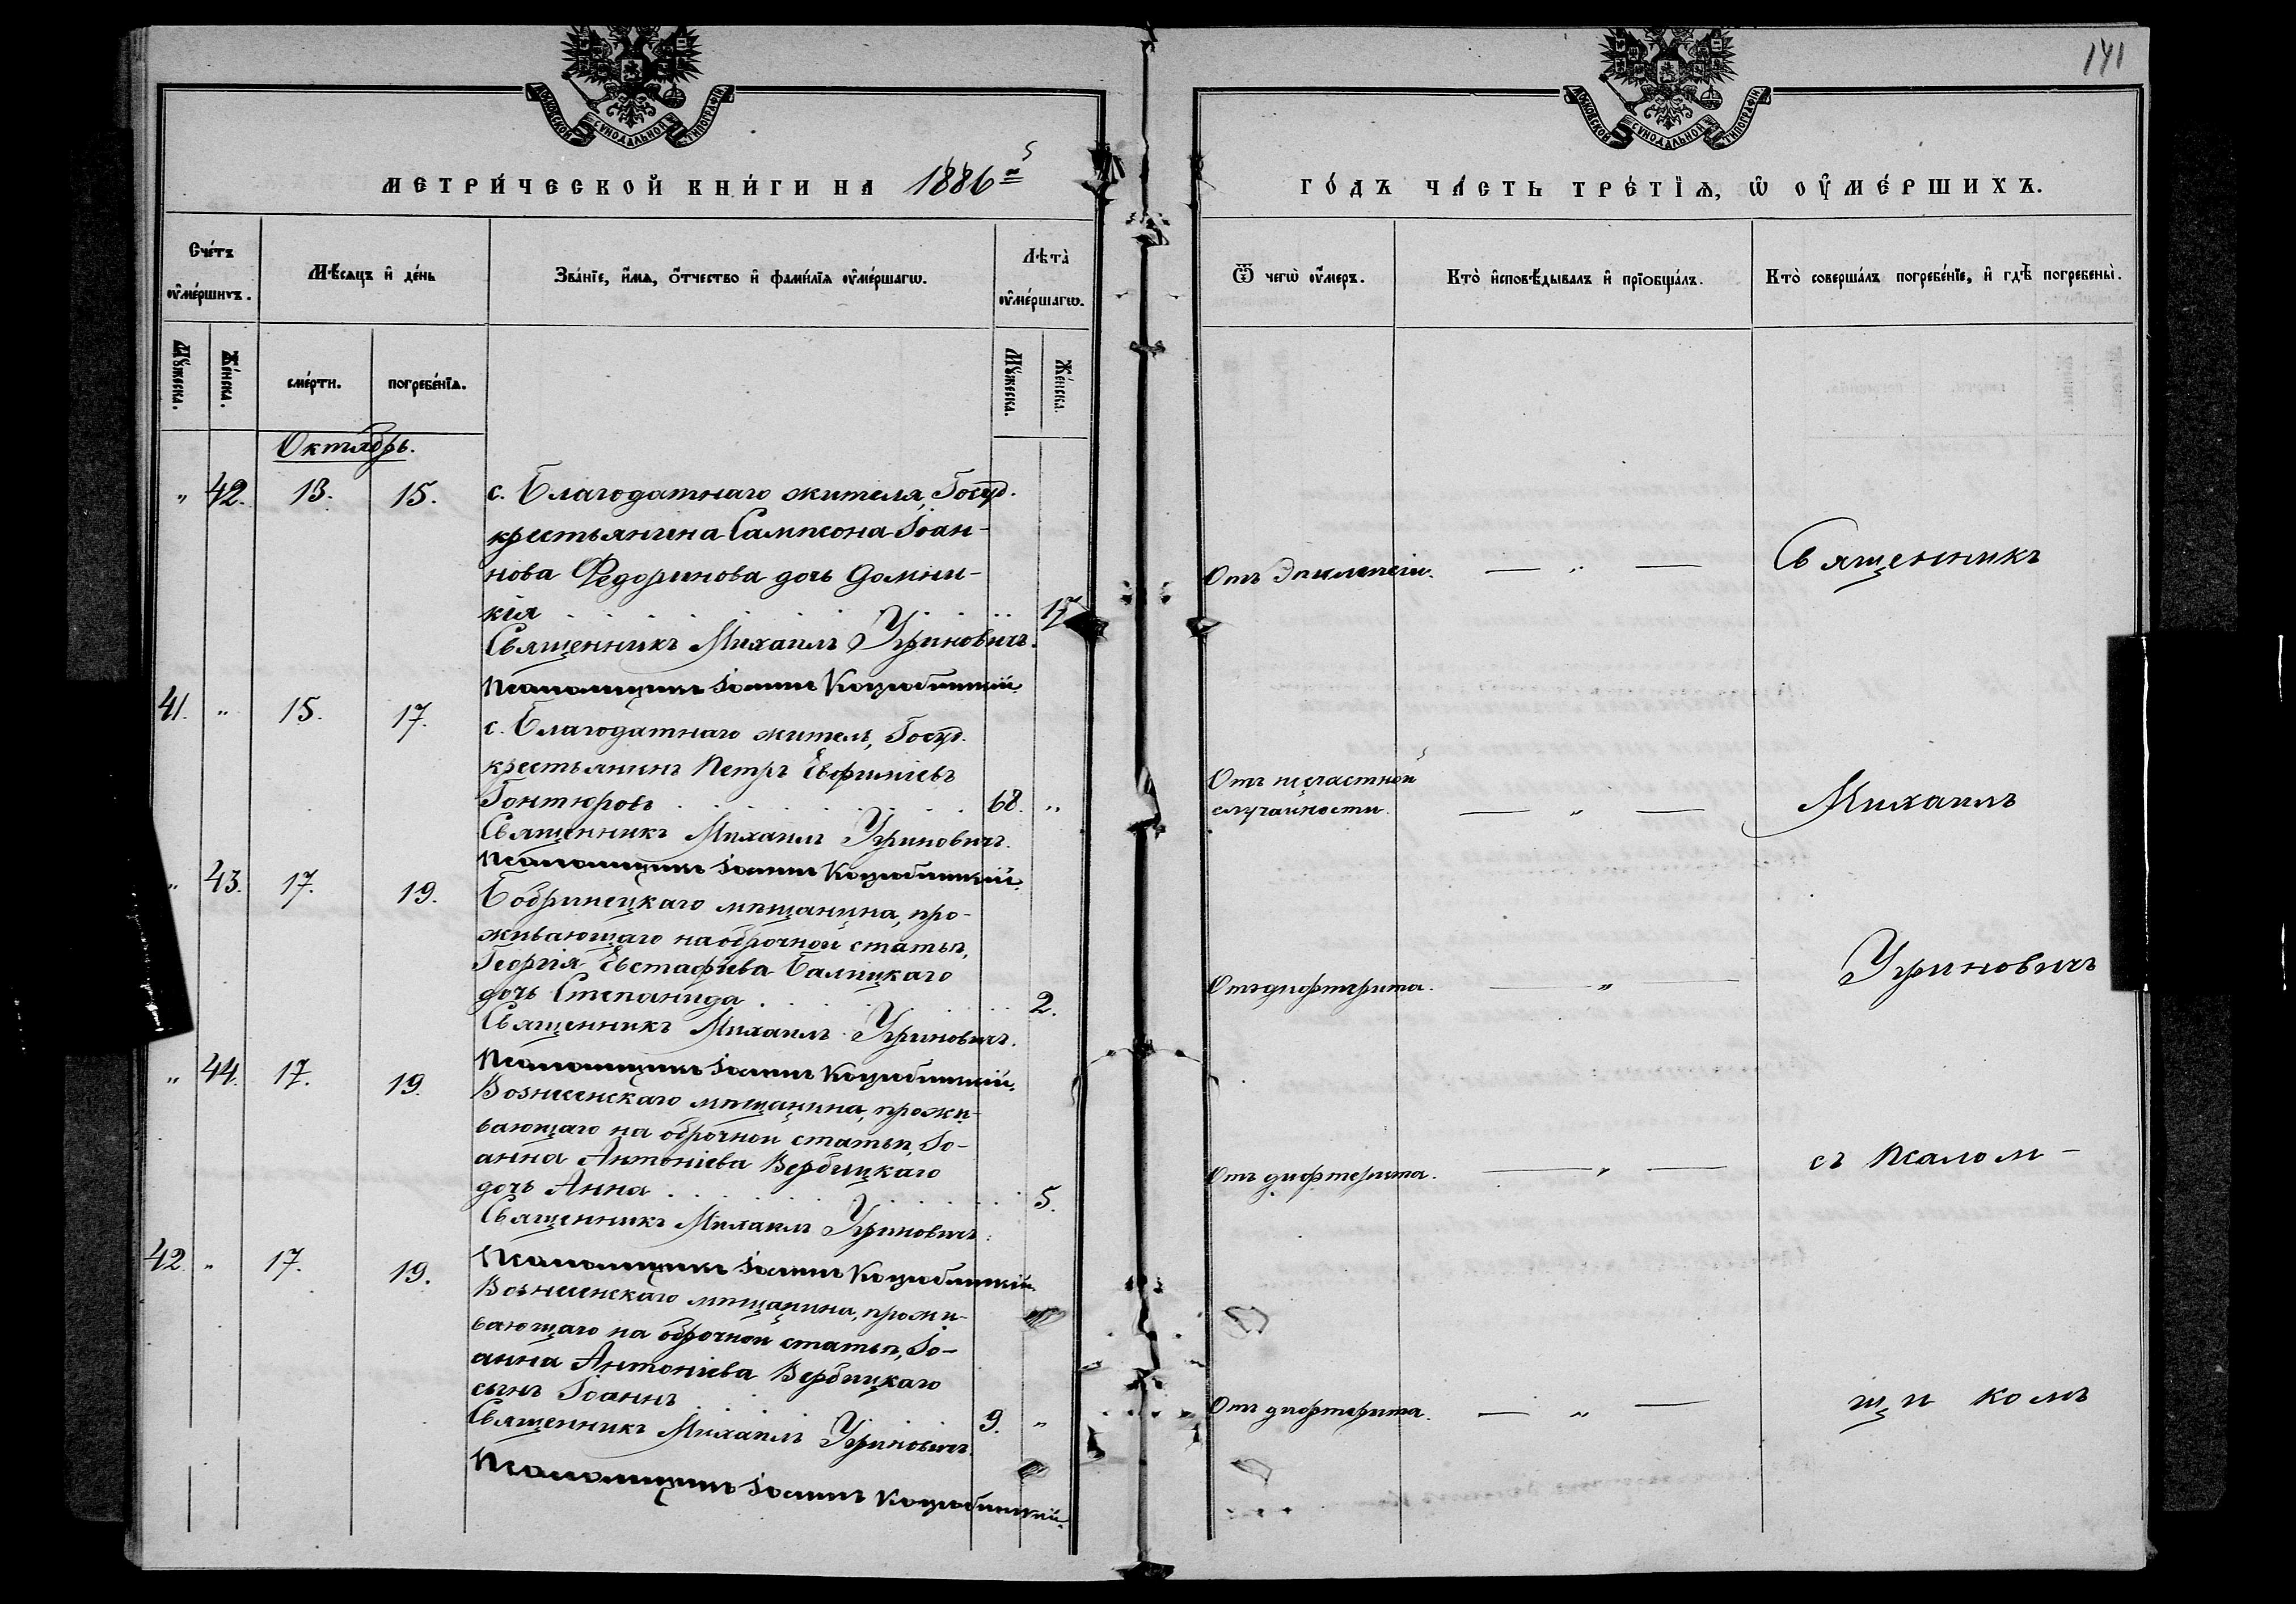 141
МОСКОВСКОЙ СѴНОДАЛЬНОЙ ТИПОГРАФІИ
МОСКОВСКОЙ СѴНОДАЛЬНОЙ ТИПОГРАФІИ
МЕТРИ́ЧЕСКОЙ КНИ́ГИ НА 1886й
ГО́ДЪ ЧА́СТЬ ТРЕ́ТІѦ, Ѽ ОУ҆МЕ́РШИХЪ.
Сче́тъ оу҆ме́ршихъ.
Мѣ́сѧцъ и҆ де́нь
Зва́нїе, и҆́мѧ, ѻ҆́тчество и҆ фами́лїѧ оу҆ме́ршагѡ.
Лѣта̀ оу҆ме́ршагѡ.
Ѿ чегѡ̀ оу҆́меръ.
Кто̀ и҆сповѣ́дывалъ и҆ прїобща́лъ.
Кто̀ соверша́лъ погребе́нїе, и҆ гдѣ̀ погребены̀.
Мꙋ́жеска.
Же́нска.
сме́рти.
погребе́нїѧ.
Мꙋ́жеска.
Же́нска.
Октябрь.
„ 42. 13. 15. с. Благодатнаго жителя, Госуд.
крестьянина Сампсона Іоан-
нова Федоринова дочь Домни-
кія 17 Отъ эпилепсіи. — „ — Священникъ
Священникъ Михаилъ Угриновичъ.
Псаломщикъ Іоаннъ
41. „ 15. 17. с. Благодатнаго житель, Госуд.
крестьянинъ Петръ Евфиміевъ
Гонтюровъ 68. „ Отъ нещастной
случайности. — „ — Михаилъ
Священникъ Михаилъ Угриновичъ.
Псаломщикъ Іоаннъ
„ 43. 17. 19. Бобринецкаго мѣщанина, про-
живающаго на оброчной статьѣ,
Георгія Евстафіева Балицкаго
дочь Степанида 2. Отъ дифтерита. — „ — Угриновичъ
Священникъ Михаилъ Угриновичъ.
Псаломщикъ Іоаннъ
„ 44. 17. 19. Вознесенскаго мѣщанина, прожи-
вающаго на оброчной статьѣ, Іо-
анна Антоніева Вербицкаго
дочь Анна 5. Отъ дифтерита. — „ — съ псалом-
Священникъ Михаилъ Угриновичъ.
Псаломщикъ Іоаннъ
42. „ 17. 19. Вознесенскаго мѣщанина, прожи-
вающаго на оброчной статьѣ, Іо-
анна Антоніева Вербицкаго
сынъ Іоаннъ 9. „ Отъ дифтерита. — „ — щикомъ
Священникъ Михаилъ Угриновичъ.
Псаломщикъ Іоаннъ